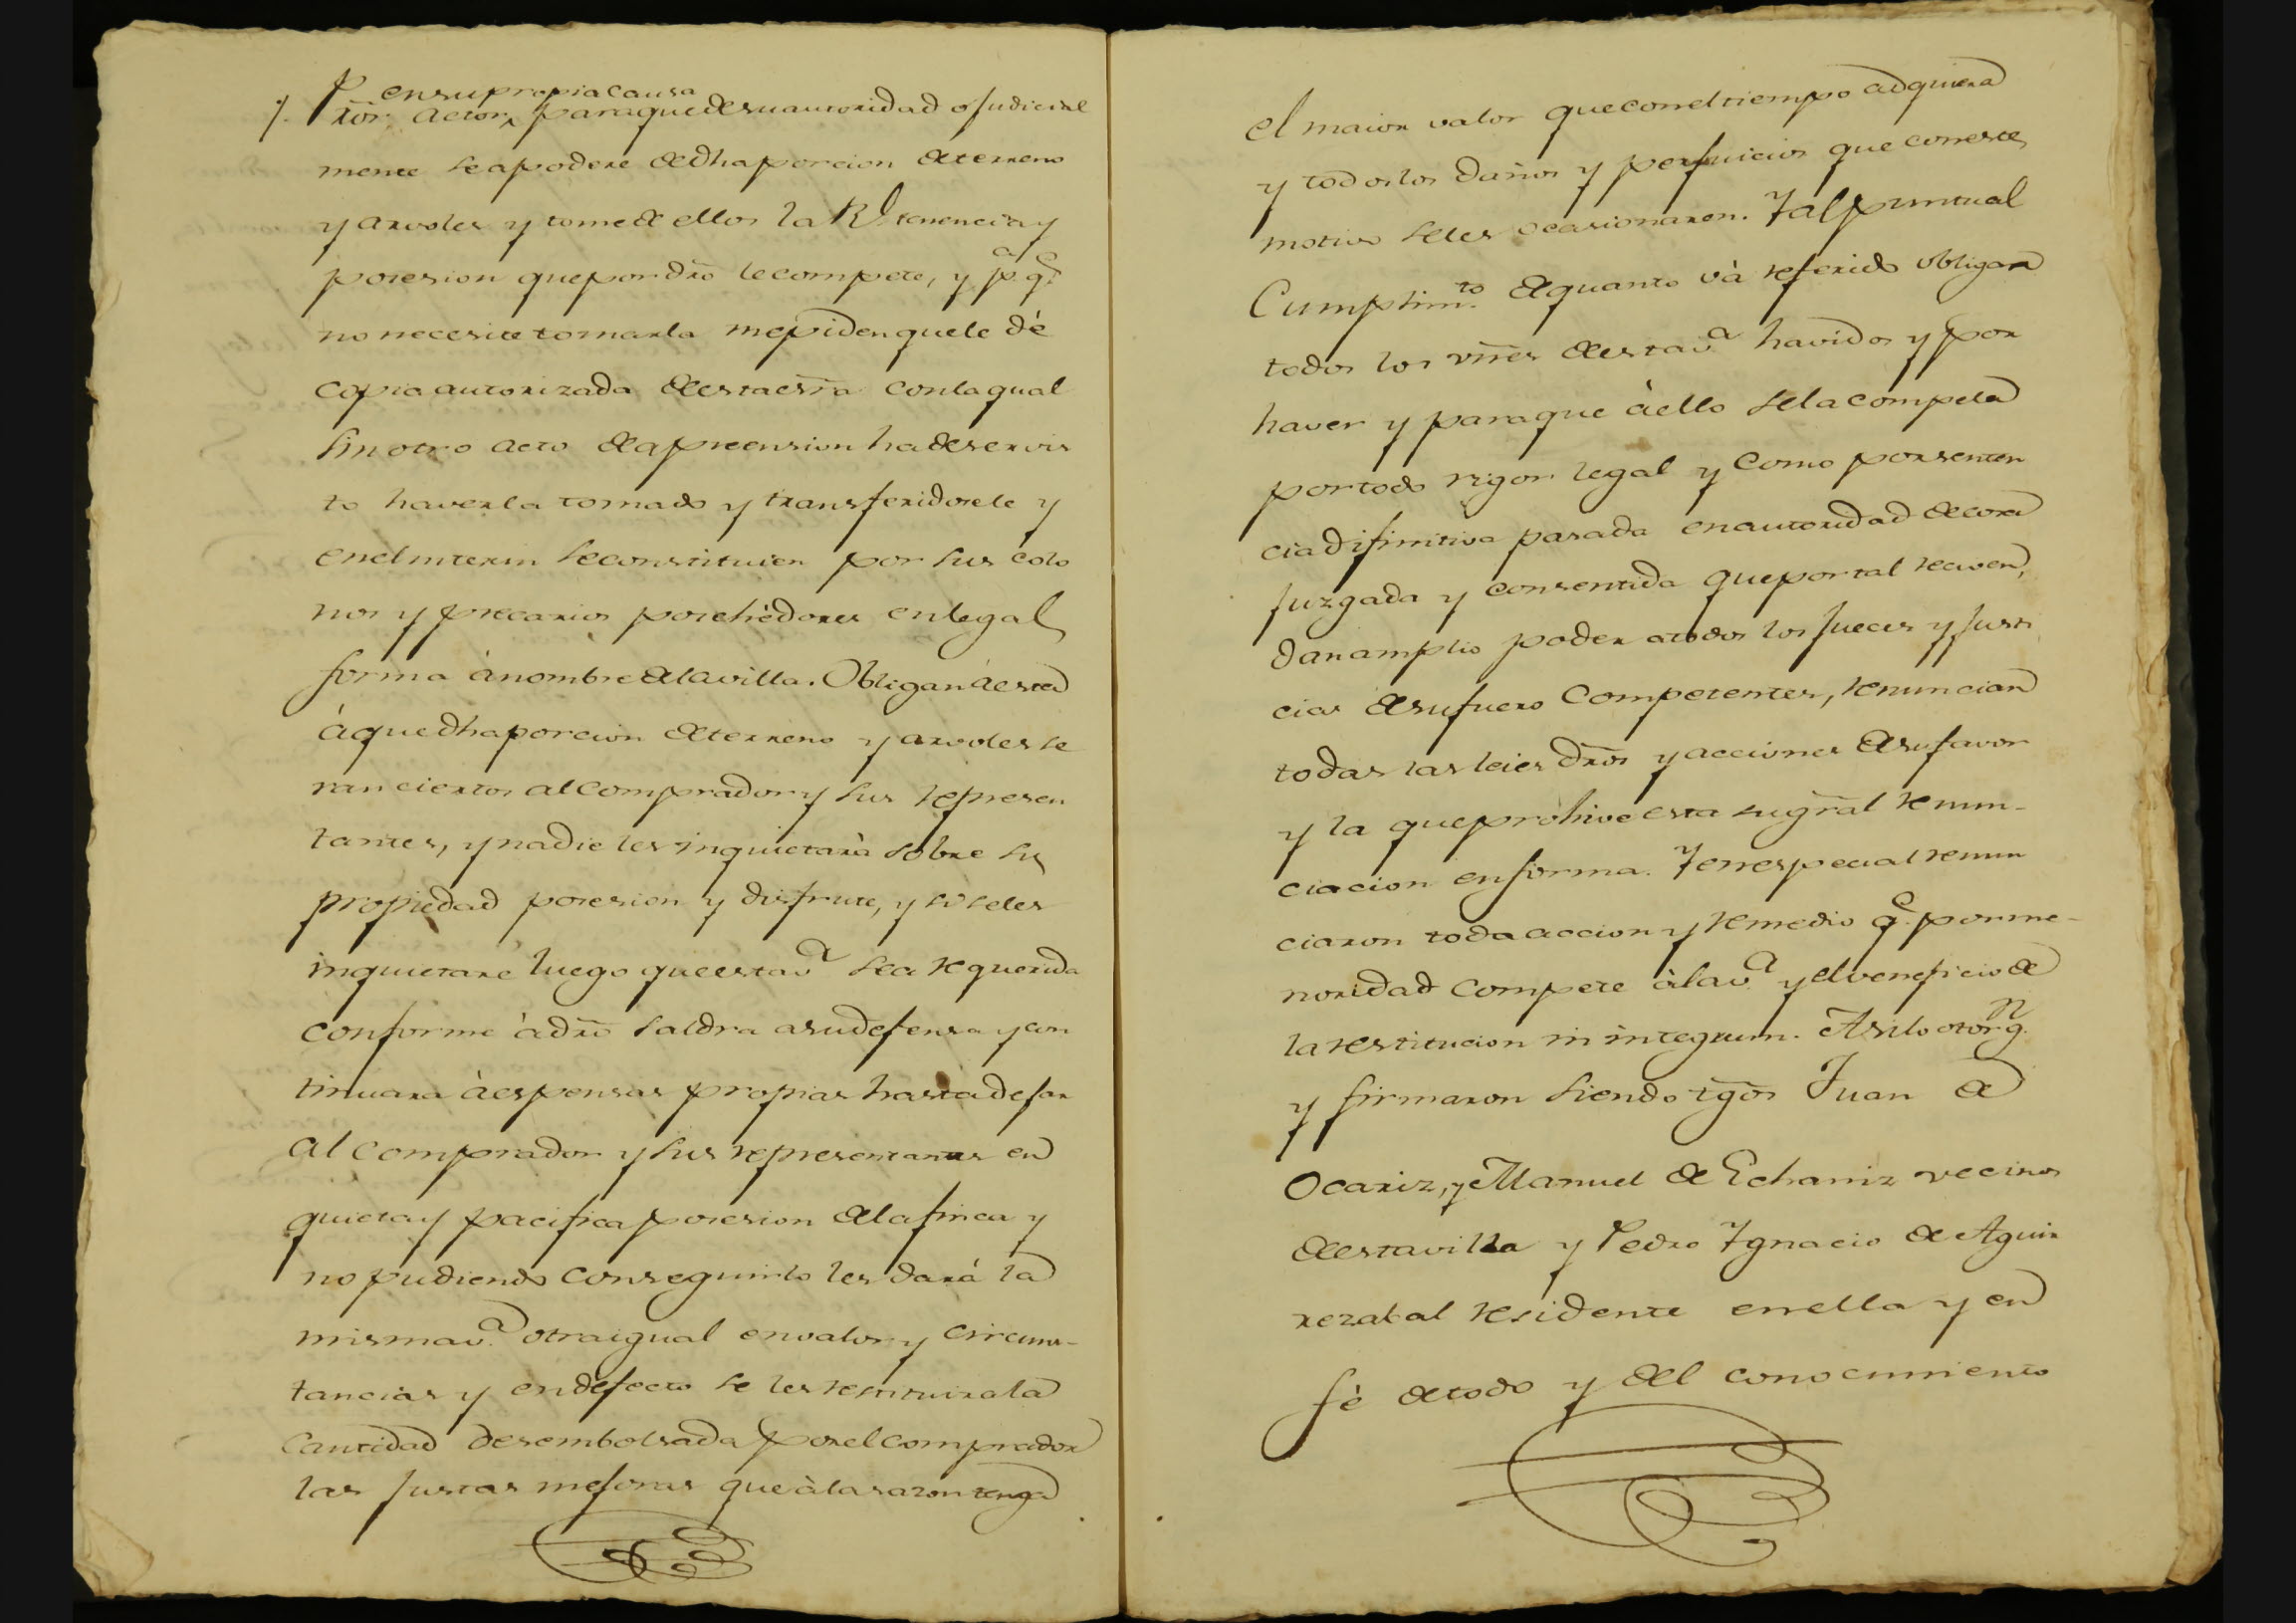 en su propia causa
/. Pror. Actor, para que de su autoridad ò Judicial
mente se apodere de dha porcion de terreno
y arvoles y tome de ellos la Rl. tenencia y
posesion que por dr̃o le compete, y p.a q.e
no necesite tomarla me piden que le dè
copia autorizada de esta esr̃a con la qual
sin otro acto de apreension ha de ser vis
to haverla tomado y transferidosele y
en el interin se constituien por sus colo
nos y precarios posehèdores en legal
forma à nombre de la villa. Obligan à esta
à que dha porcion de terreno y arvoles se
ran ciertos al comprador y sus represen
tantes, y nadie les inquietarà sobre su
propiedad posesion y disfrute, y si se les
inquietare luego que esta v.a sea requerida
conforme à dr̃o saldra a su defensa y con
tinuara à espensas propias hasta dejar
al comprador y sus representantes en
quieta y pacifica posesion de la finca y
no pudiendo conseguirlo les darà la
misma v.a otra igual en valor y circuns-
tancias y en defecto se les restituira la
cantidad desembolsada por el comprador
las justas mejoras que à la sazon tenga
el maior valor que con el tiempo adquiera
y todos los daños y perjuicios que con este
motivo se les ocasionaren. Y al puntual
Cumplim.to de quanto và referido obligan
todos los vñes de esta v.a havidos y por
haver y para que à ello se la compela
por todo rigor legal y como por senten
cia difinitiva pasada en autoridad de cosa
Juzgada y consentida que por tal reciven,
dan amplio poder a todos los Jueces y Justi
cias de su fuero competentes, renuncian
todas las leies dr̃os y acciones de su favor
y la que prohive esta su gr̃al renun-
ciacion en forma. Y en especial renun
ciaron toda accion y remedio q.e por me-
noridad compete à la v.a y el veneficio de
la restitucion in integrum. Asi lo otorg.n
y firmaron siendo tg̃os Juan de
Ocariz, y Manuel de Echaniz vecinos
de esta villa y Pedro Ygnacio de Aguir
rezabal residente en ella y en
fè de todo y del conocimiento